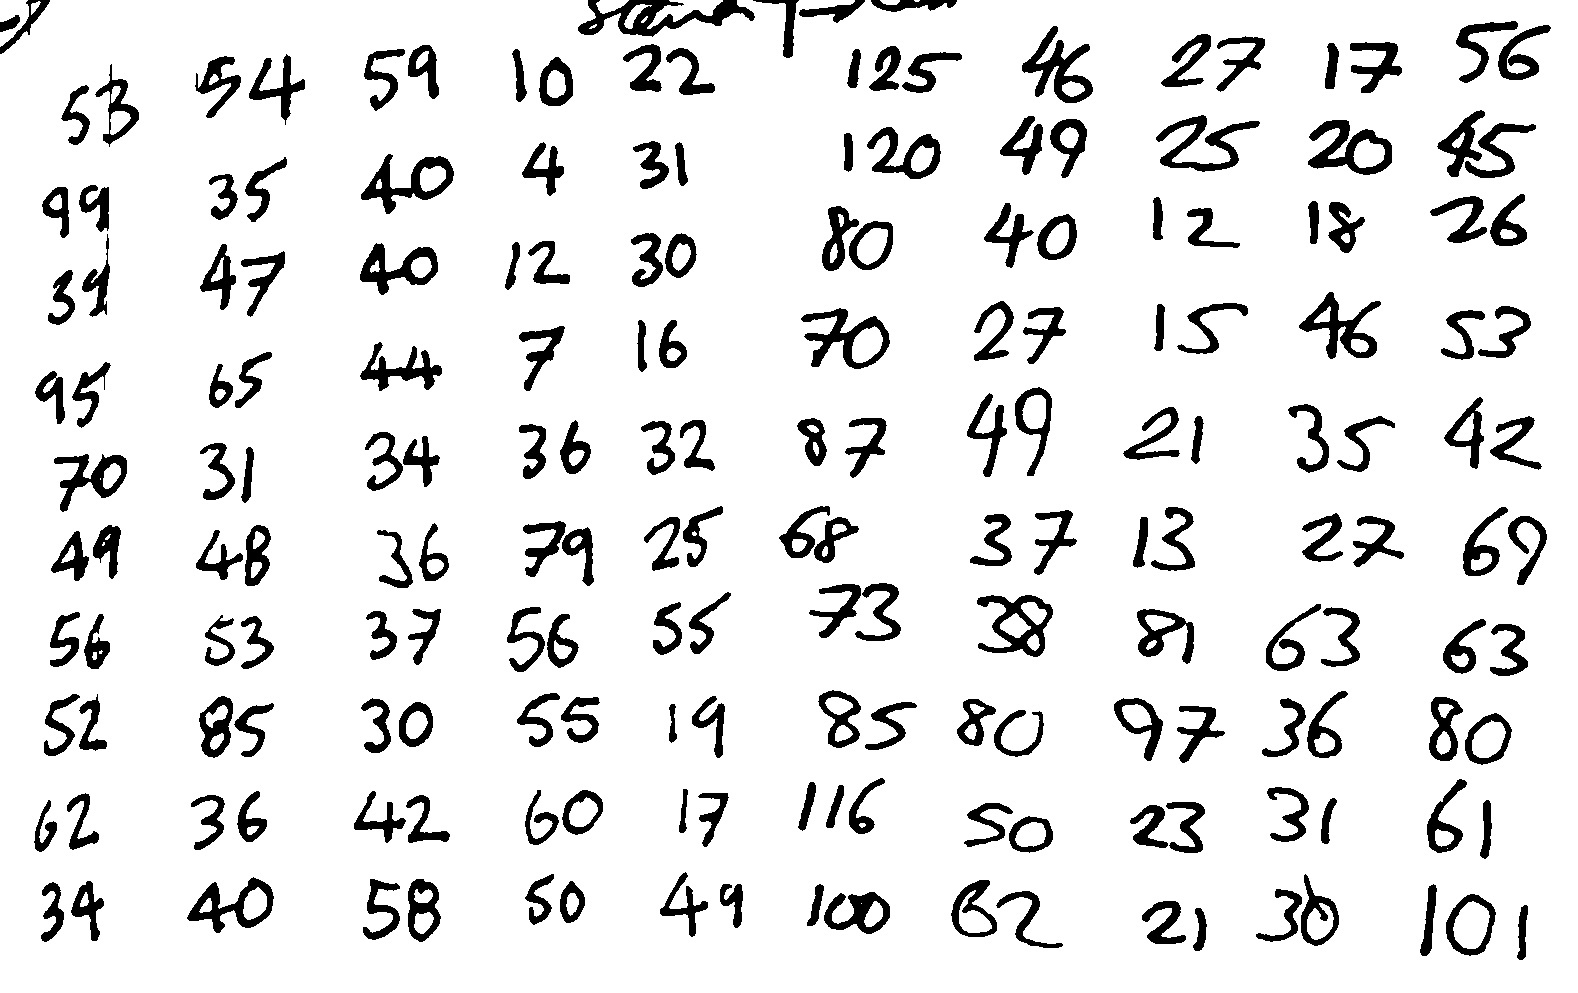 53 54 59 10 22 125 46 27 17 56
99 35 40 4 31 120 49 25 20 45
39 47 40 12 30 80 40 12 18 26
95 65 44 7 16 70 27 15 46 53
70 31 34 36 32 87 49 21 35 42
49 48 36 79 25 68 37 13 27 69
56 53 37 56 55 73 38 81 63 63
52 85 30 55 19 85 80 97 36 80
62 36 42 60 17 116 50 23 31 61
34 40 58 50 49 100 62 21 30 101